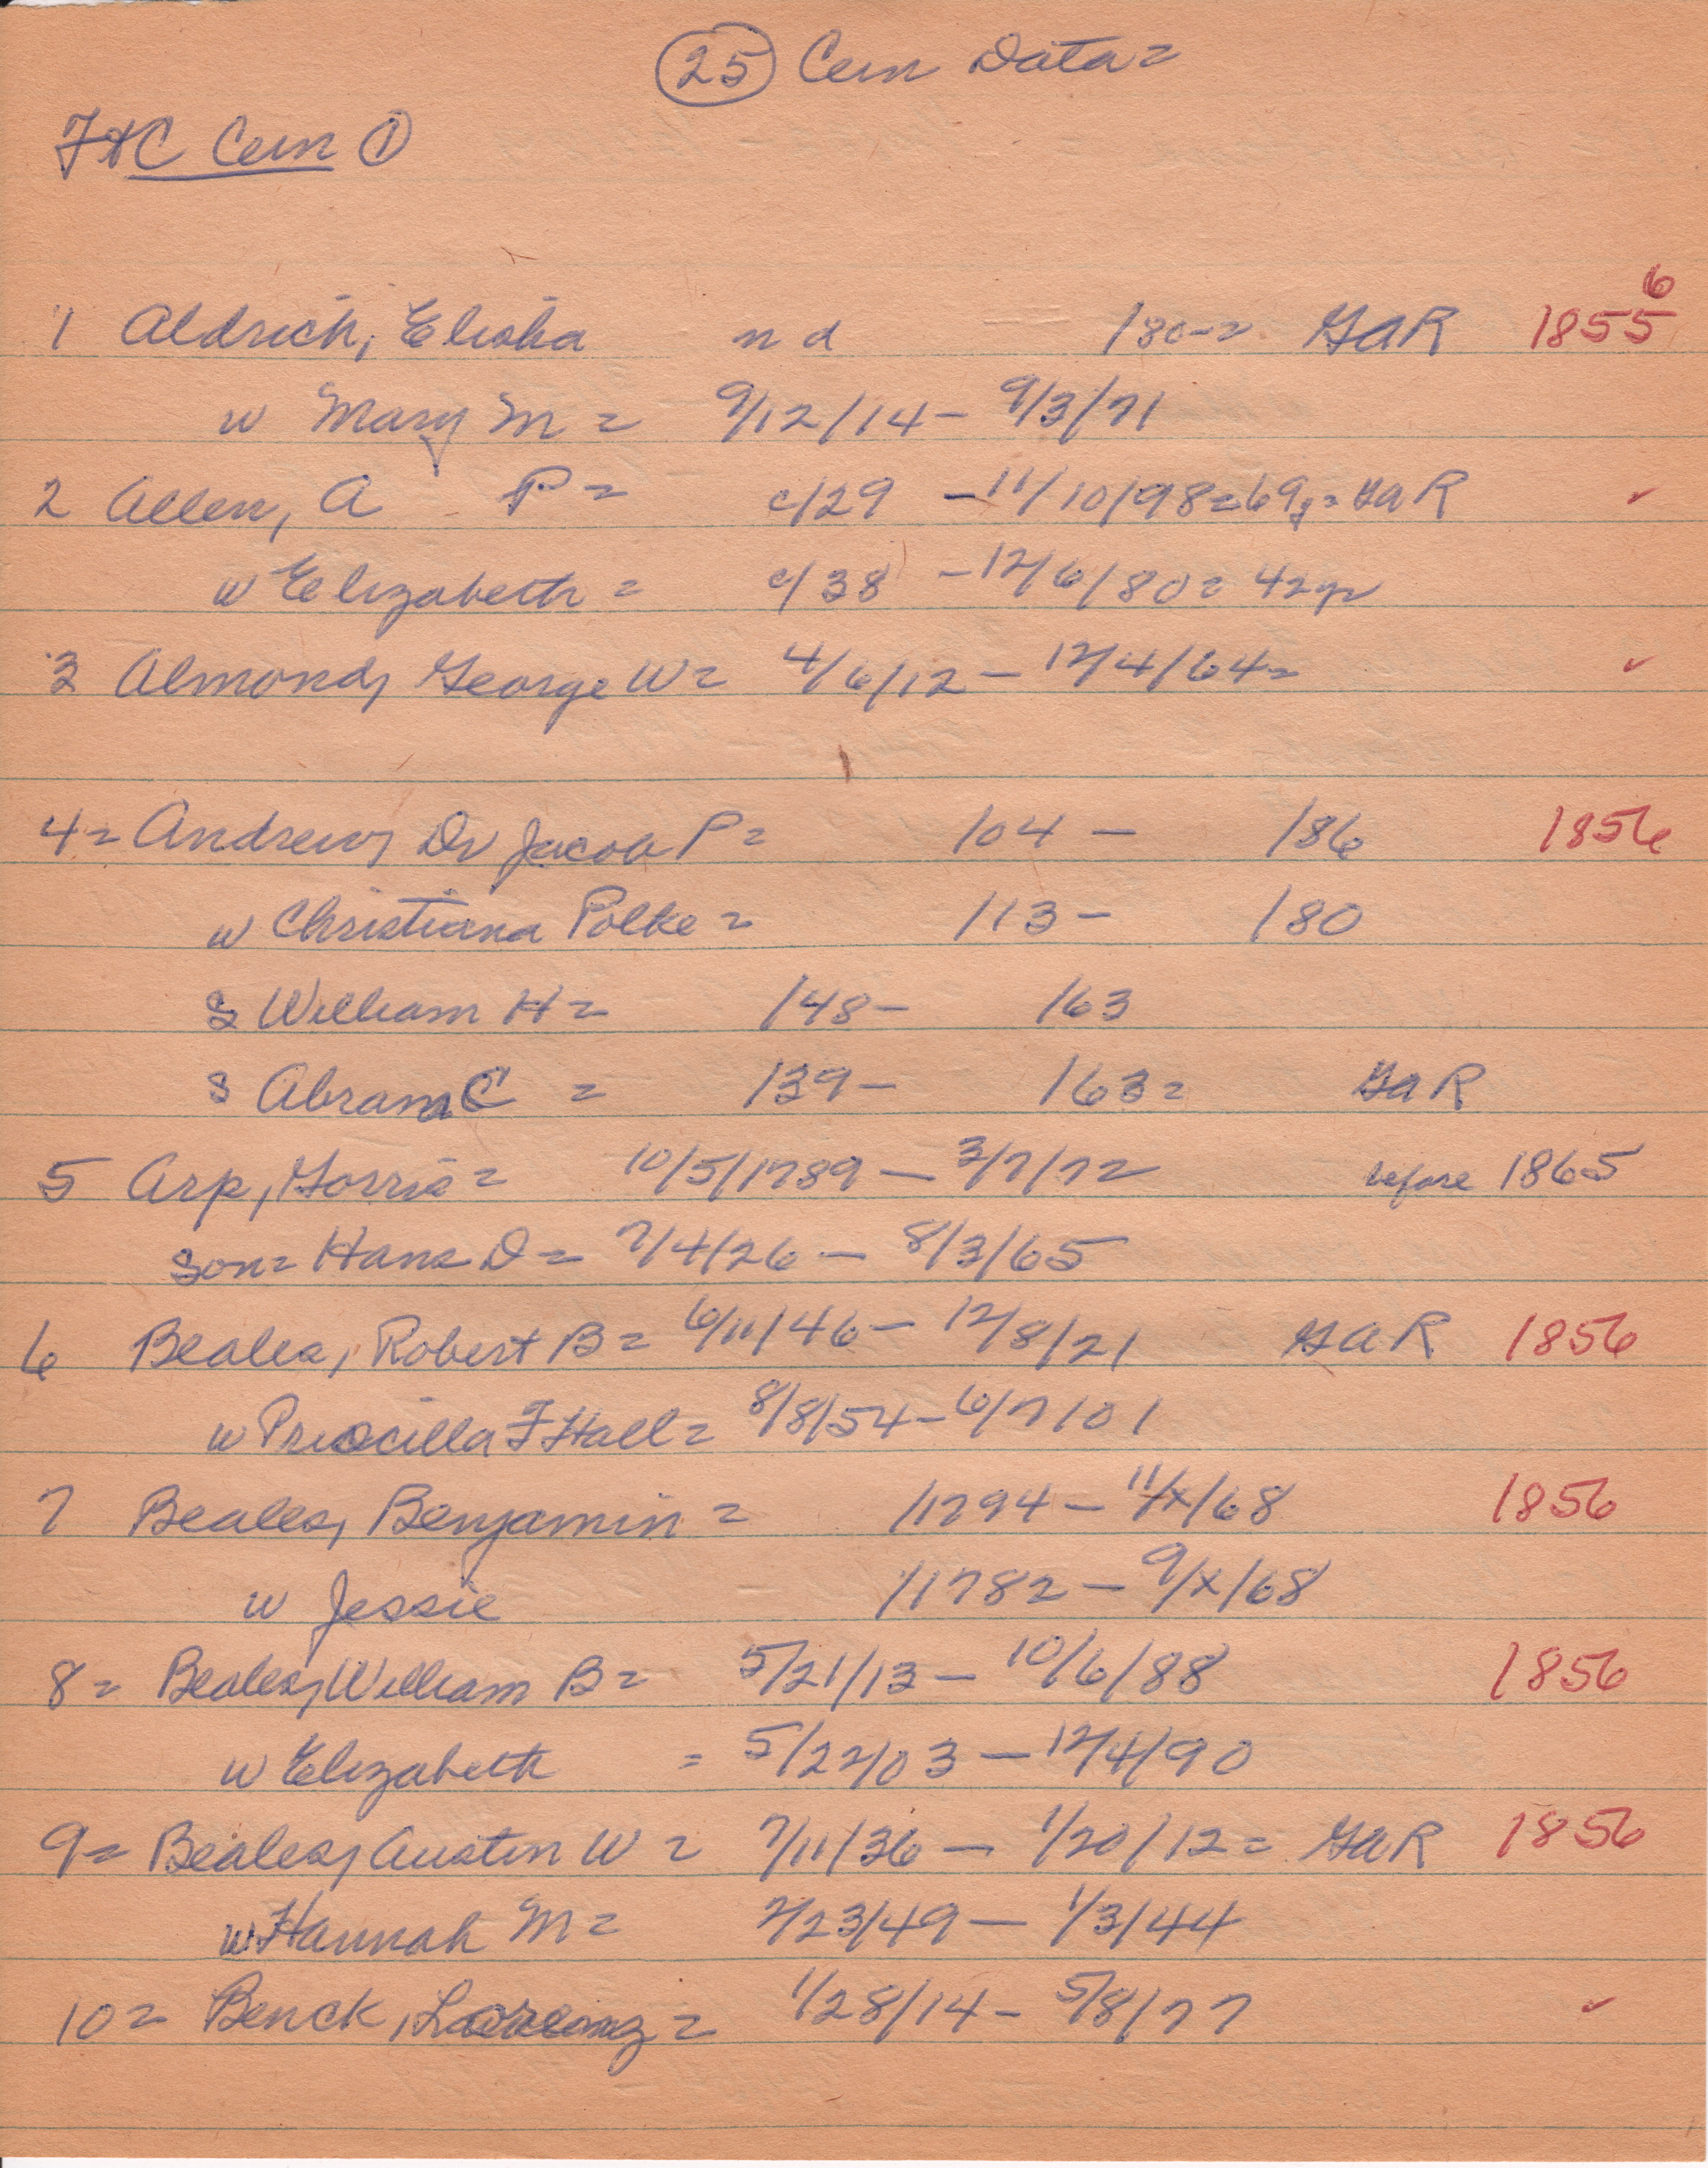 (25) Cem Data =
FHC Cem (1)
1 Aldrich, Elisha n d — /80-= GAR 1855 6
w Mary M = 9/12/14 - 9/3/71
2 Allen, A P = c/29 - 11/10/98 = 69y = GAR ✓
w Elizabeth = c/38 - 12/6/80 = 42yr
3 Almond, George W = 4/6/12 - 12/4/64 = ✓
4 = Andrew, Dr Jacob P = /04 - /86 1856
w Christiana Polke = /13 - /80
s William H = /48 - /63
s Abram C = /39 - /63 = GAR
5 Arp, = 10/5/1789 - 3/7/72 before 1865
son = Hans D = 7/4/26 - 8/3/65
6 Beales, Robert B = 6/11/46 - 12/8/21 GAR 1856
w Priscilla F Hall = 8/8/54 - 6/7/01
7 Beales, Benjamin = /1794 - 11/x/68 1856
w Jessie /1782 - 9/x/68
8 = Beales, William B = 5/21/13 - 10/6/88 1856
w Elizabeth = 5/22/03 - 12/4/90
9 = Beales, Austin W = 7/11/36 - 1/20/12 = GAR 1856
w Hannah M = 2/23/49 - 1/3/44
10 = Benck, = 1/28/14 - 5/8/77 ✓